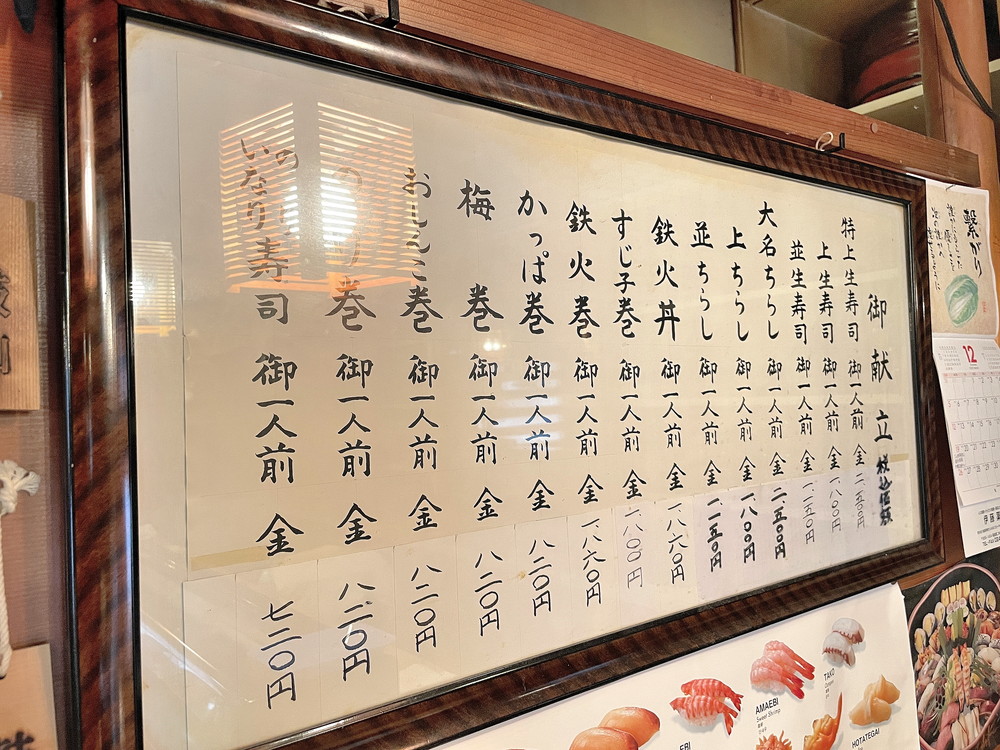 御献立 税込価額
特上生寿司 御一人前 金 二五〇〇円
上生寿司 御一人前 金 一八〇〇円
並生寿司 御一人前 金 一二五〇円
大名ちらし 御一人前 金 二五〇〇円
上ちらし 御一人前 金 一八〇〇円
並ちらし 御一人前 金 一二五〇円
鉄火丼 御一人前 金 一八六〇円
すじ子巻 御一人前 金 一八〇〇円
鉄火巻 御一人前 金 一八六〇円
かっぱ巻 御一人前 金 八二〇円
梅巻 御一人前 金 八二〇円
おしんこ巻 御一人前 金 八二〇円
のり巻 御一人前 金 八二〇円
いなり寿司 御一人前 金 七二〇円
繋がり
12
TAKO
AMAEBI
Sweet Shrimp
EBI
HOTATEGAI